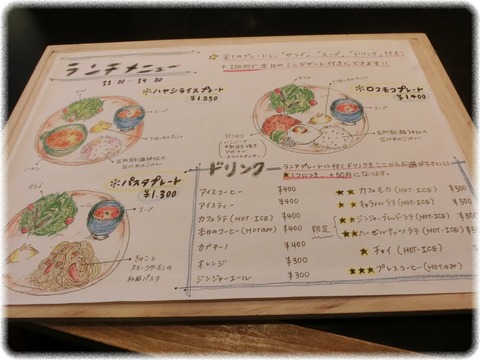 ランチメニュー
11:00 - 14:30
☆全てのプレートに「サラダ」「スープ」「ドリンク」付き!
+100円で本日のミニデザート付きにできます!!
※ハヤシライスプレート
¥1.350
※ロコモコプレート
¥1.400
サラダ
スープ
ハヤシ
※パスタプレート
¥1.300
きのこと
スモークサーモンの
和風パスタ
ドリンク
ランチプレートに付くドリンクをここからお選び下さい!
★1つにつき +50円になります。
アイスコーヒー ¥400
アイスティー ¥400
カフェラテ(HOT・ICE) ¥400
本日のコーヒー(HOTのみ) ¥400
カプチーノ ¥400
オレンジ ¥300
ジンジャーエール ¥300
限定
★★カフェモカ(HOT・ICE) ¥500
★★キャラメルラテ(HOT・ICE)
★★ジンジャーブレッドラテ(HOT・ICE)
★★ヘーゼルナッツラテ(HOT・ICE)
★チャイ(HOT・ICE)
★★★プレスコーヒー(HOTのみ)